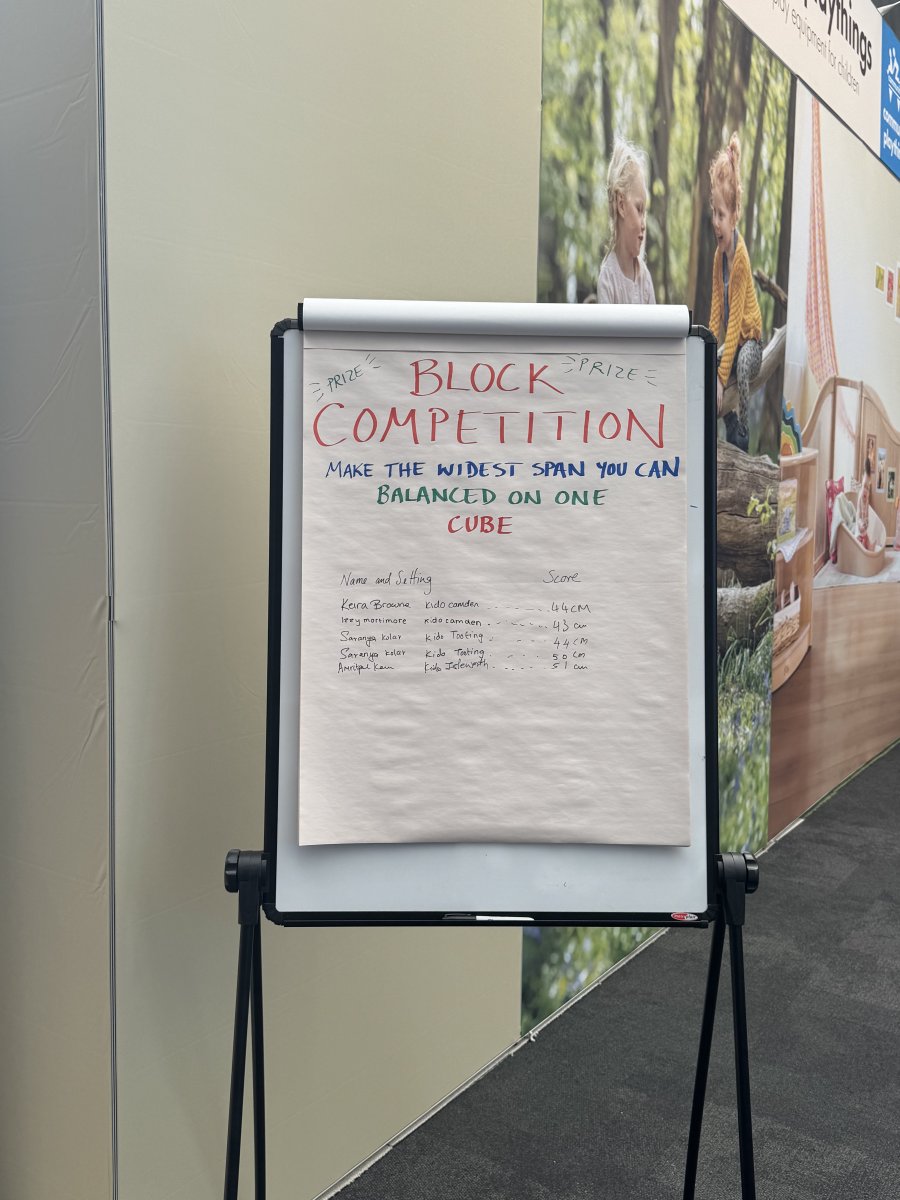 playthings
play equipment for children
PRIZE
PRIZE
BLOCK
COMPETITION
MAKE THE WIDEST SPAN YOU CAN
BALANCED ON ONE
CUBE
Name and Setting Score
Keira Browne Kido camden 44CM
Izzy mortimore Kido camden 43 cm
Saranya kolar Kido Tooting 44 CM
Saranya kolar Kido Tooting 50 CM
Amritpal Kido Isleworth 51 cm